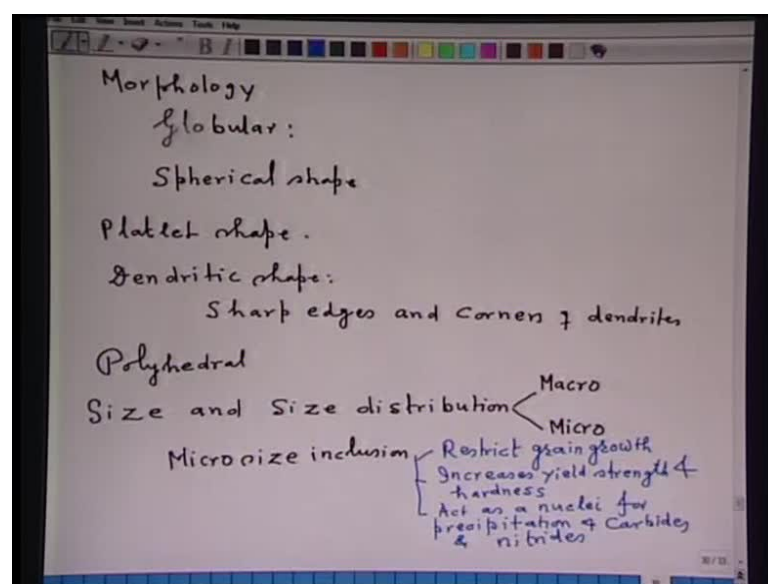 Edit View Insert Actions Tools Help
B I
Morphology
Globular :
Spherical shape
Platlet shape .
Dendritic shape:
Sharp edges and corners of dendrites
Polyhedral
Size and Size distribution
Macro
Micro
Micro size inclusion
Restrict grain growth
Increases yield strength &
hardness
Act as a nuclei for
precipitation of Carbides
& nitrides